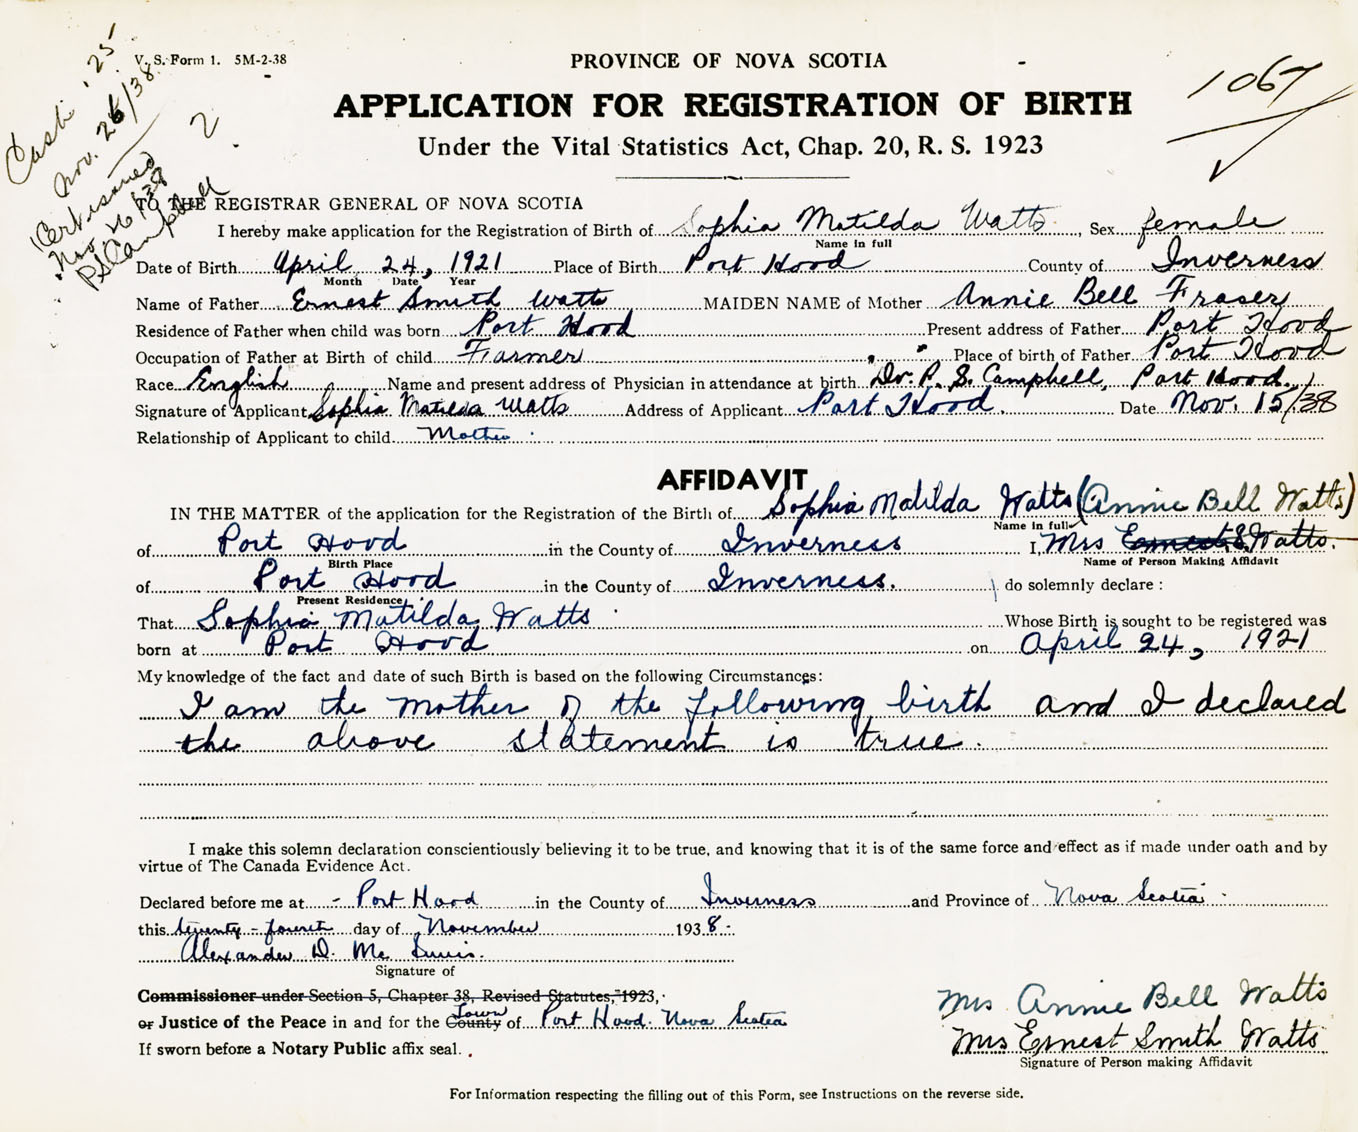 V. S. Form 1. 5M-2-38
Cash .25
Nov. 26/38
2
Cert issued
Nov 26/38
PSCampbell
1067
PROVINCE OF NOVA SCOTIA
APPLICATION FOR REGISTRATION OF BIRTH
Under the Vital Statistics Act, Chap. 20, R. S. 1923
TO THE REGISTRAR GENERAL OF NOVA SCOTIA
I hereby make application for the Registration of Birth of Sophia Matilda Watts, Sex female
Name in full
Date of Birth April 24, 1921 Place of Birth Port Hood County of Inverness
Month Date Year
Name of Father Ernest Smith Watts MAIDEN NAME of Mother Annie Bell Fraser
Residence of Father when child was born Port Hood Present address of Father Port Hood
Occupation of Father at Birth of child Farmer Place of birth of Father Port Hood
Race English Name and present address of Physician in attendance at birth Dr. P. S. Campbell, Port Hood.
Signature of Applicant Sophia Matilda Watts Address of Applicant Port Hood. Date Nov. 15/38
Relationship of Applicant to child Mother
AFFIDAVIT
IN THE MATTER of the application for the Registration of the Birth of Sophia Matilda Watts (Annie Bell Watts)
Name in full
of Port Hood in the County of Inverness I, Mrs Ernest S. Watts.
Birth Place Name of Person Making Affidavit
of Port Hood in the County of Inverness. do solemnly declare:
Present Residence
That Sophia Matilda Watts Whose Birth is sought to be registered was
born at Port Hood on April 24, 1921
My knowledge of the fact and date of such Birth is based on the following Circumstances:
I am the mother of the following birth and I declared
the above statement is true.
I make this solemn declaration conscientiously believing it to be true, and knowing that it is of the same force and effect as if made under oath and by
virtue of The Canada Evidence Act.
Declared before me at Port Hood in the County of Inverness and Province of Nova Scotia
this twenty-fourth day of November 1938.
Alexander D. Mc
Signature of
Commissioner under Section 5, Chapter 38, Revised Statutes, 1923,
Town
or Justice of the Peace in and for the County of Port Hood. Nova Scotia
If sworn before a Notary Public affix seal.
Mrs Annie Bell Watts
Mrs Ernest Smith Watts
Signature of Person making Affidavit
For Information respecting the filling out of this Form, see Instructions on the reverse side.